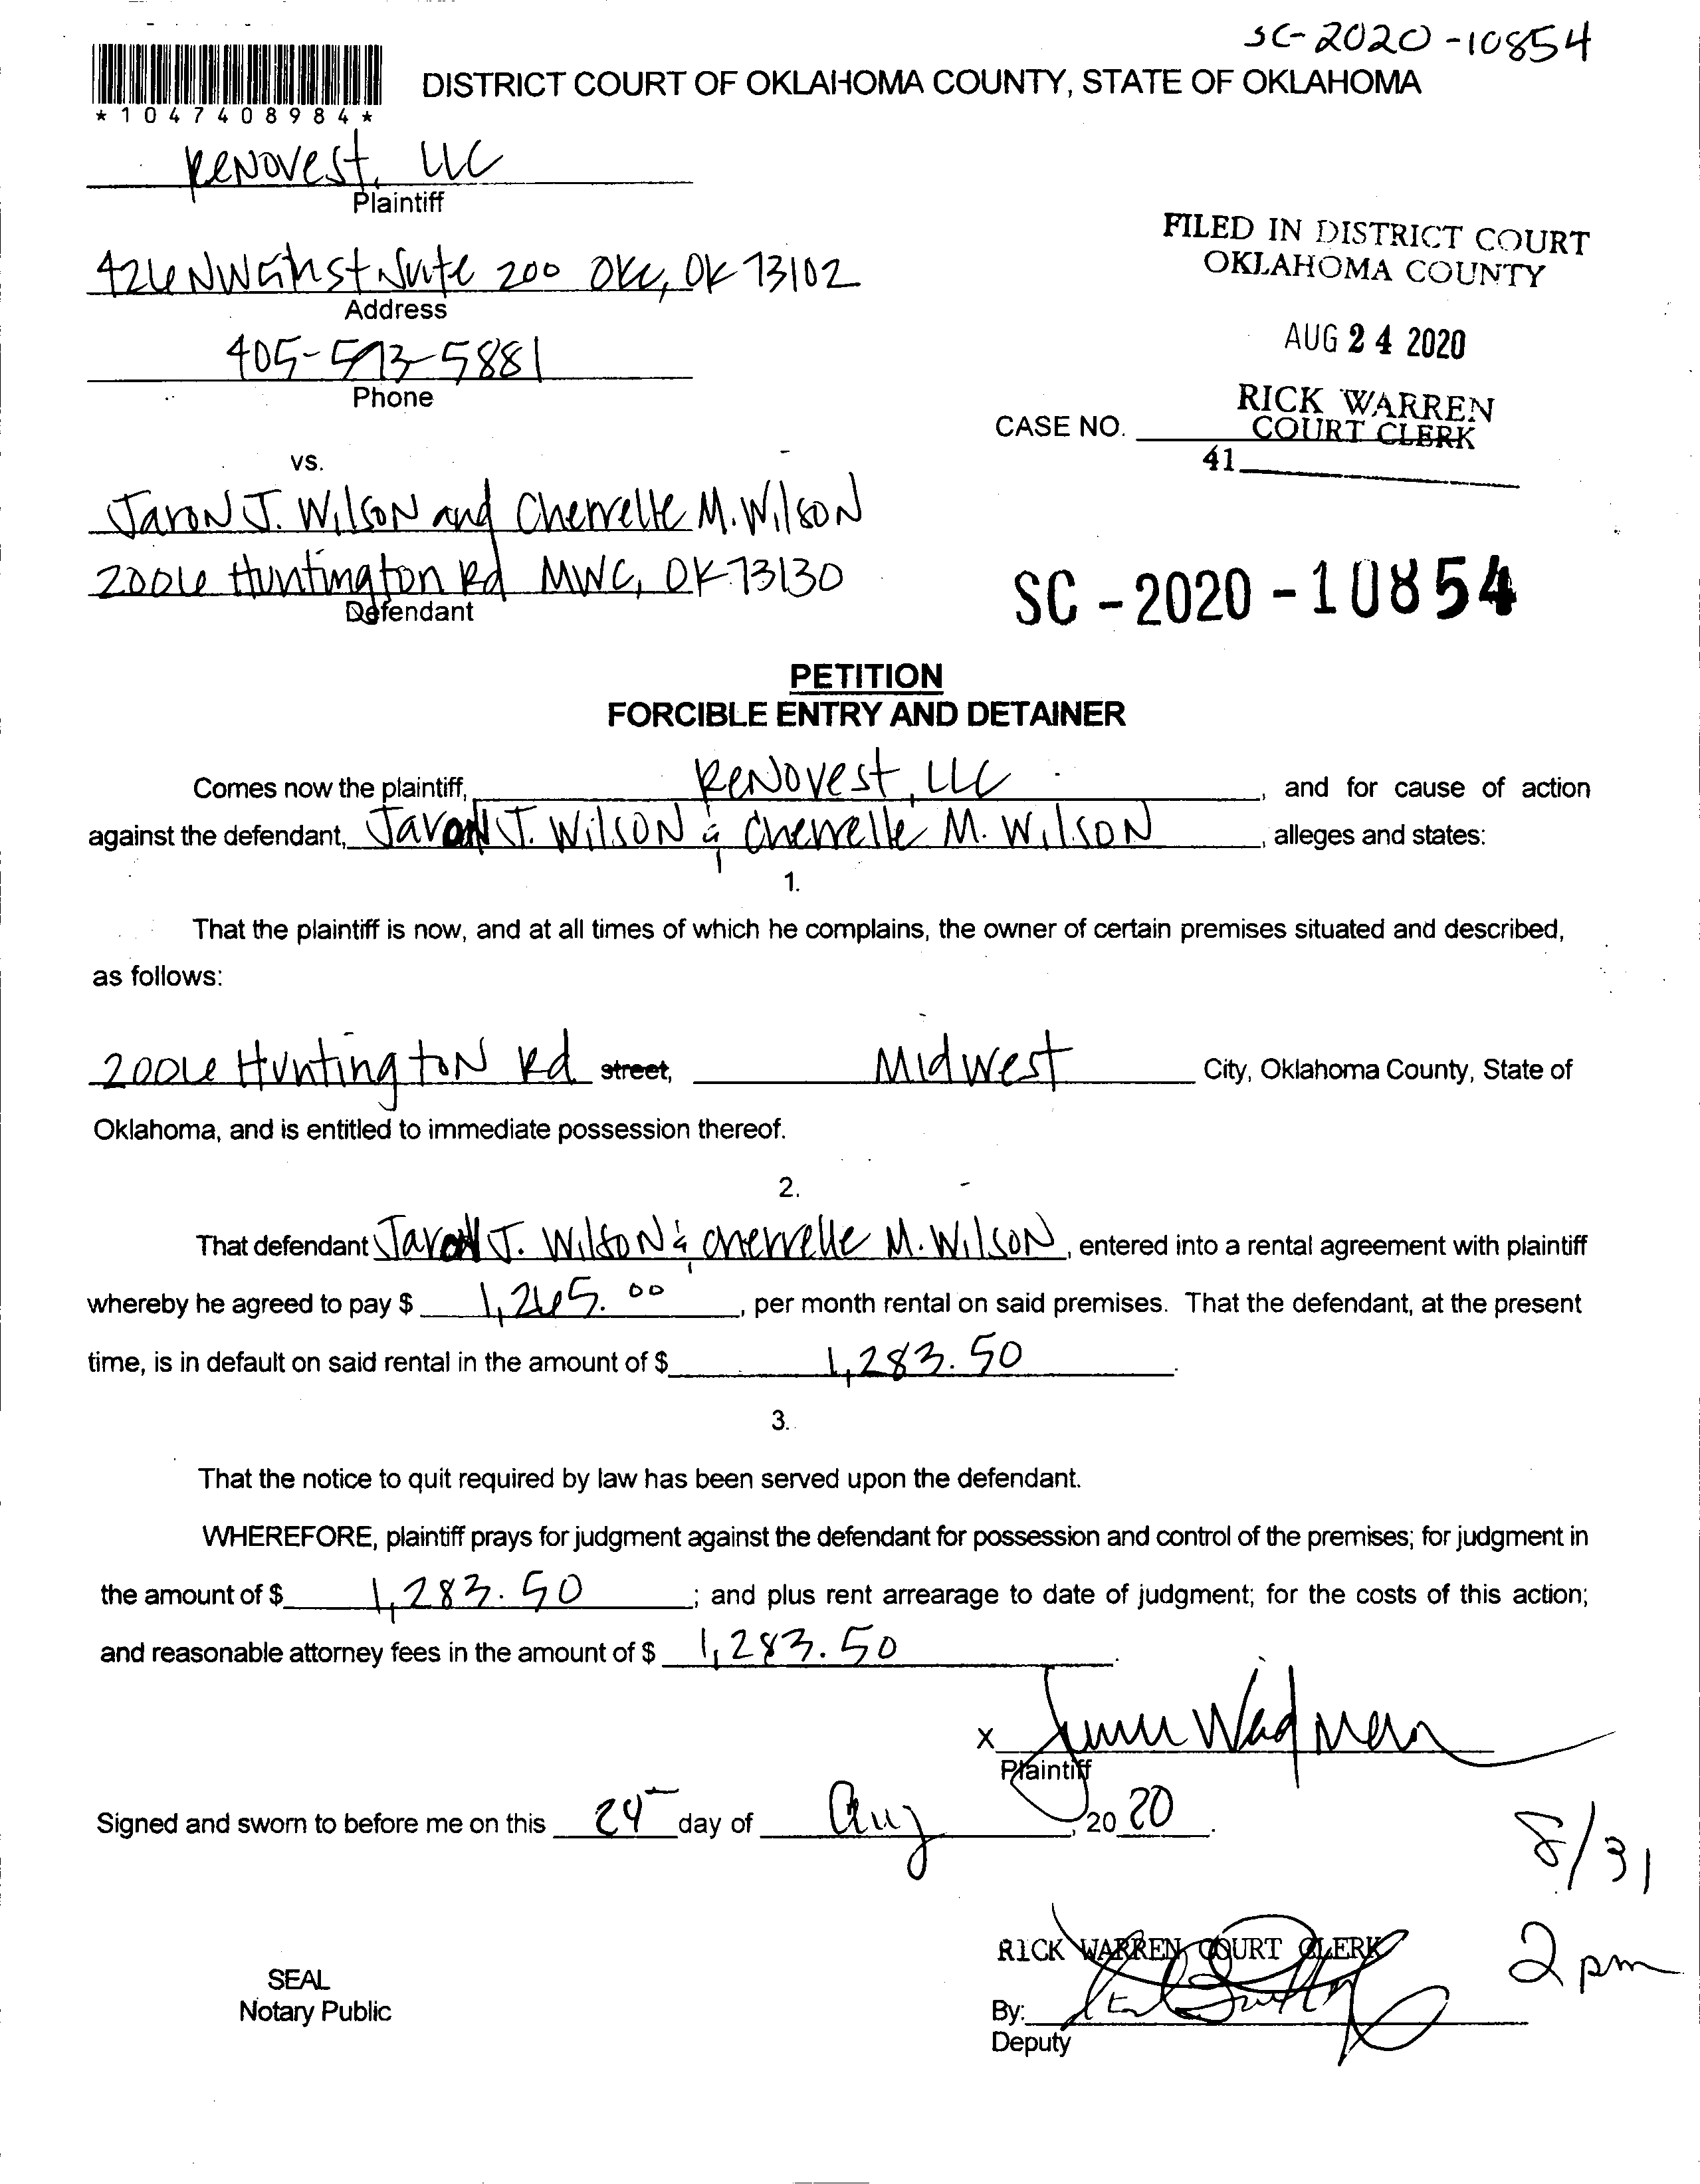 SC-2020-10854
DISTRICT COURT OF OKLAHOMA COUNTY, STATE OF OKLAHOMA
* 1 0 4 7 4 0 8 9 8 4 *
Renovest, LLC
Plaintiff
426 NW 6th St Suite 200 OKC, OK 73102
Address
405-593-5881
Phone
FILED IN DISTRICT COURT
OKLAHOMA COUNTY
AUG 24 2020
RICK WARREN
COURT CLERK
CASE NO.
41
vs.
Jaron J. Wilson and Cherrelle M. Wilson
2006 Huntington Rd MWC, OK 73130
Defendant
SC - 2020 - 10854
PETITION
FORCIBLE ENTRY AND DETAINER
Comes now the plaintiff, Renovest, LLC, and for cause of action
against the defendant, Jaron J. Wilson & Cherrelle M. Wilson, alleges and states:
1.
That the plaintiff is now, and at all times of which he complains, the owner of certain premises situated and described,
as follows:
2006 Huntington Rd street, Midwest City, Oklahoma County, State of
Oklahoma, and is entitled to immediate possession thereof.
2.
That defendant Jaron J. Wilson & Cherrelle M. Wilson, entered into a rental agreement with plaintiff
whereby he agreed to pay $ 1,265.00, per month rental on said premises. That the defendant, at the present
time, is in default on said rental in the amount of $ 1,283.50.
3.
That the notice to quit required by law has been served upon the defendant.
WHEREFORE, plaintiff prays for judgment against the defendant for possession and control of the premises; for judgment in
the amount of $ 1,283.50; and plus rent arrearage to date of judgment; for the costs of this action;
and reasonable attorney fees in the amount of $ 1,283.50.
X
Plaintiff
Signed and sworn to before me on this 24 day of Aug, 2020.
8/31
2 pm
RICK WARREN, COURT CLERK
SEAL
Notary Public
By:
Deputy